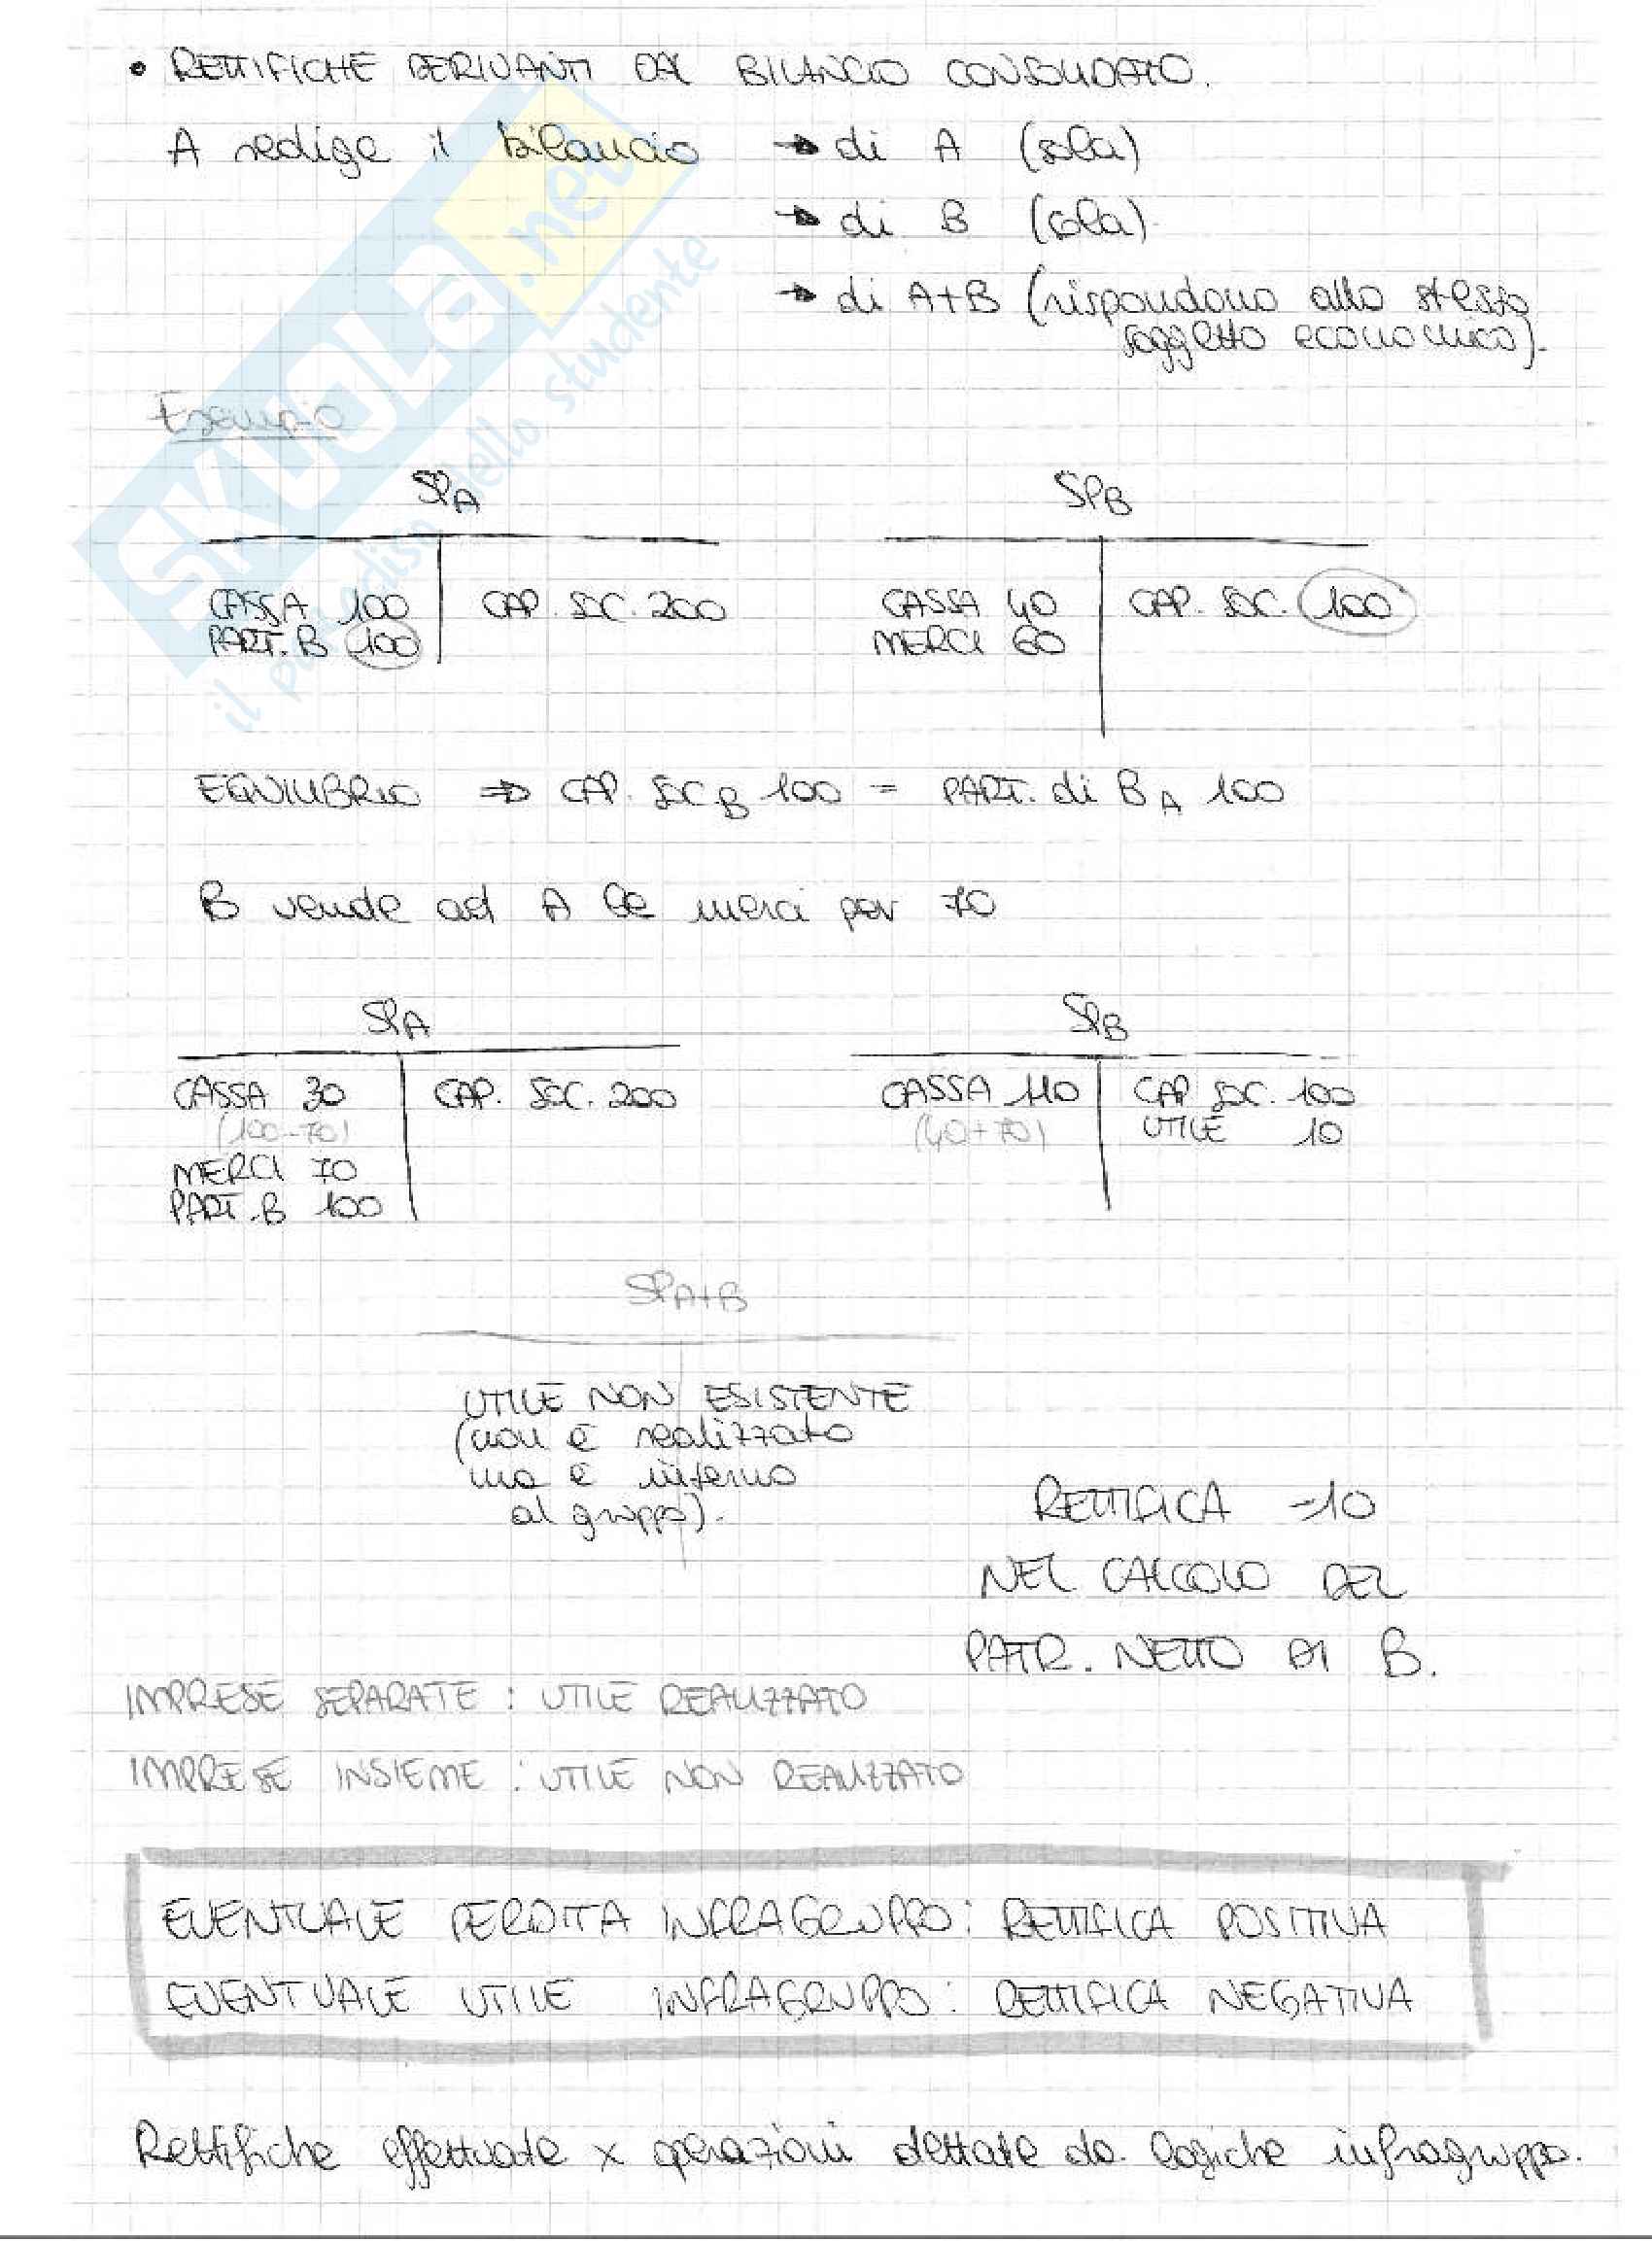 • RETTIFICHE DERIVANTI DAL BILANCIO CONSOLIDATO.
A redige il bilancio → di A (sola)
→ di B (sola)
→ di A+B (rispondono allo stesso
soggetto economico).
Esempio
SPA SPB
CASSA 100 CAP. SOC. 200 CASSA 40 CAP. SOC. 100
PART. B 100 MERCI 60
EQUILIBRIO ⇒ CAP. SOC.B 100 = PART. di BA 100
B vende ad A le merci per 70
SPA SPB
CASSA 30 CAP. SOC. 200 CASSA 110 CAP. SOC. 100
(100-70) (40+70) UTILE 10
MERCI 70
PART. B 100
SPA+B
UTILE NON ESISTENTE
(non è realizzato
ma è interno
al gruppo).
RETTIFICA -10
NEL CALCOLO DEL
PATR. NETTO DI B.
IMPRESE SEPARATE : UTILE REALIZZATO
IMPRESE INSIEME : UTILE NON REALIZZATO
EVENTUALE PERDITA INFRAGRUPPO: RETTIFICA POSITIVA
EVENTUALE UTILE INFRAGRUPPO: RETTIFICA NEGATIVA
Rettifiche effettuate x operazioni dettate da logiche infragruppo.
SKUOLA.net
il paradiso dello studente